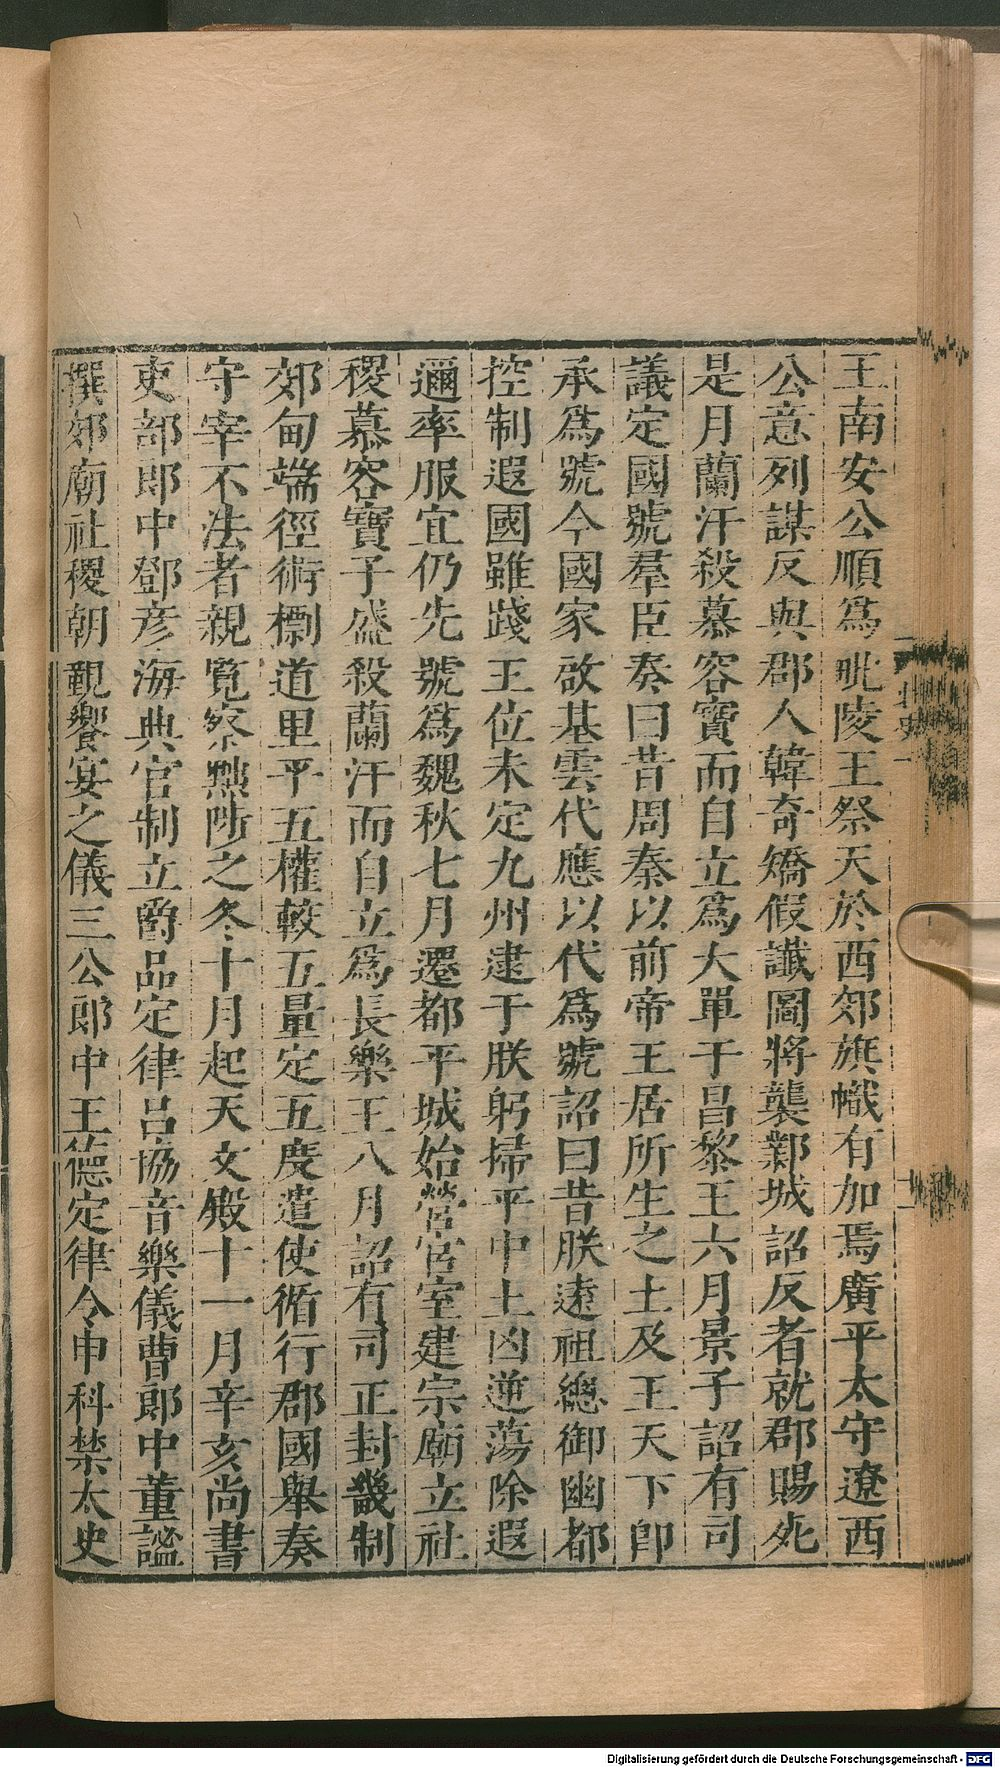 王南安公順爲毗陵王祭天於西郊旗幟有加焉廣平太守遼西
公意列謀反與郡人韓奇矯假讖圖將襲鄴城詔反者就郡賜死
是月蘭汗殺慕容寶而自立爲大單于昌黎王六月景子詔有司
議定國號羣臣奏曰昔周秦以前帝王居所生之土及王天下即
承爲號今國家啟基雲代應以代爲號詔曰昔朕遠祖總御幽都
控制遐國雖踐王位未定九州逮于朕躬掃平中土凶逆蕩除遐
邇率服宜仍先號爲魏秋七月遷都平城始營宮室建宗廟立社
稷慕容寶子盛殺蘭汗而自立爲長樂王八月詔有司正封畿制
郊甸端徑術標道里平五權較五量定五度遣使循行郡國舉奏
守宰不法者親覽察黜陟之冬十月起天文殿十一月辛亥尚書
吏部郎中鄧彦海典官制立爵品定律呂協音樂儀曹郎中董謐
撰郊廟社稷朝覲饗宴之儀三公郎中王德定律令申科禁太史
北史一
Digitalisierung gefördert durch die Deutsche Forschungsgemeinschaft - DFG